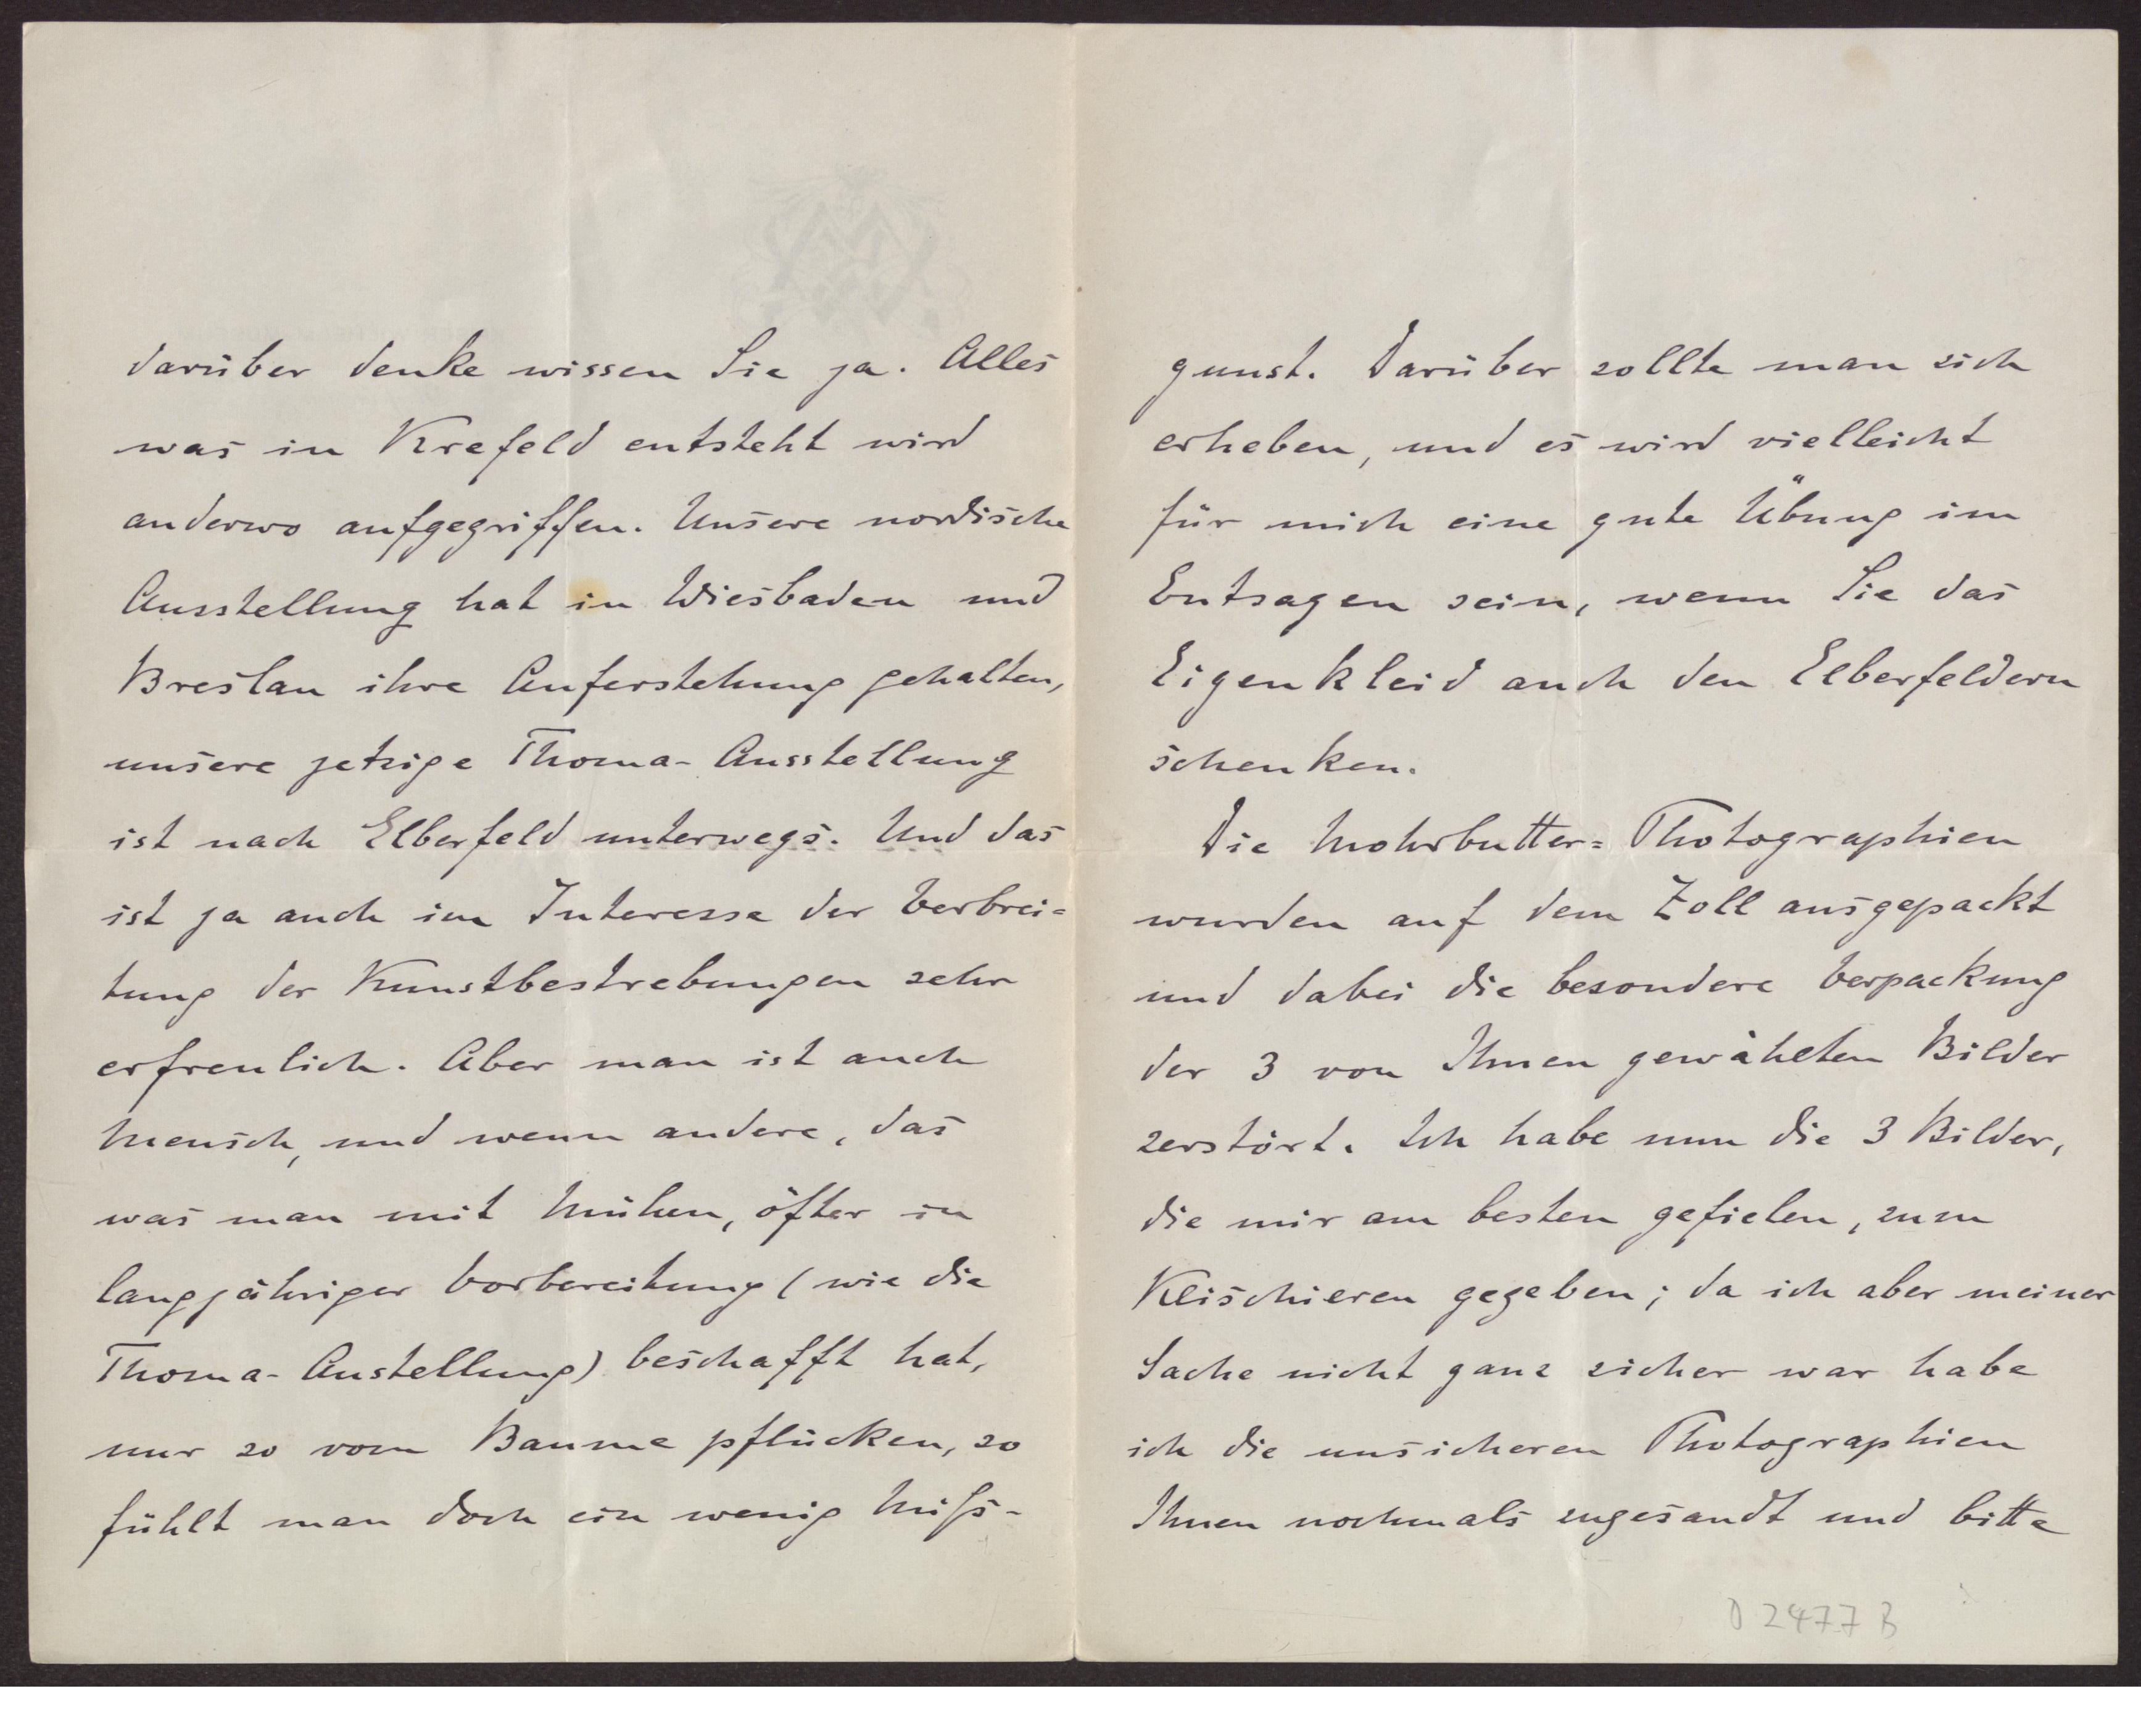 darüber denke wissen Sie ja. Alles
was in Krefeld entsteht wird
anderwo aufgegriffen. Unsere nordische
Ausstellung hat in Wiesbaden und
Breslau ihre Auferstehung gehalten,
unsere jetzige Thoma-Ausstellung
ist nach Elberfeld unterwegs. Und das
ist ja auch im Interesse der Verbrei=
tung der Kunstbestrebungen sehr
erfreulich. Aber man ist auch
Mensch, und wenn andere, das
was man mit Mühen, öfter in
langjähriger Vorbereitung (wie die
Thoma-Austellung) beschafft hat,
nur so vom Baume pflücken, so
fühlt man doch ein wenig Miſs-
gunst. Darüber sollte man sich
erheben, und es wird vielleicht
für mich eine gute Übung im
Entsagen sein, wenn Sie das
Eigenkleid auch den Elberfeldern
schenken.
Die Mohrbutter=Photographien
wurden auf dem Zoll ausgepackt
und dabei die besondere Verpackung
der 3 von Ihnen gewählten Bilder
zerstört. Ich habe nun die 3 Bilder,
die mir am besten gefielen, zum
Klischieren gegeben; da ich aber meiner
Sache nicht ganz sicher war habe
ich die unsicheren Photographien
Ihnen nochmals zugesandt und bitte
D 2477 B